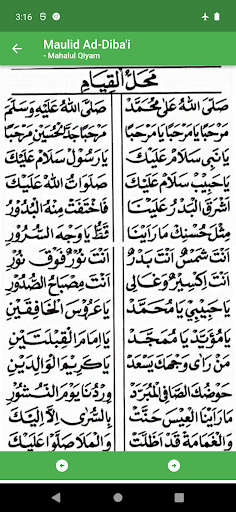 3:16
Maulid Ad-Diba'i
- Mahalul Qiyam
مَحَلُّ الْقِيَامِ
صَلَّى اللهُ عَلَى مُحَمَّدْ صَلَّى اللهُ عَلَيْهِ وَسَلَّمَ
مَرْحَبًا يَا مَرْحَبًا يَا مَرْحَبًا مَرْحَبًا جَدَّ الْحُسَيْنِ مَرْحَبًا
يَا نَبِي سَلَامْ عَلَيْكَ يَا رَسُوْلْ سَلَامْ عَلَيْكَ
يَا حَبِيْبْ سَلَامْ عَلَيْكَ صَلَوَاتُ اللهْ عَلَيْكَ
أَشْرَقَ الْبَدْرُ عَلَيْنَا فَاخْتَفَتْ مِنْهُ الْبُدُوْرُ
مِثْلَ حُسْنِكْ مَا رَأَيْنَا قَطُّ يَا وَجْهَ السُّرُوْرِ
أَنْتَ شَمْسٌ أَنْتَ بَدْرٌ أَنْتَ نُوْرٌ فَوْقَ نُوْرٍ
أَنْتَ إِكْسِيْرٌ وَغَالِي أَنْتَ مِصْبَاحُ الصُّدُوْرِ
يَا حَبِيْبِيْ يَا مُحَمَّدْ يَا عَرُوْسَ الْخَافِقَيْنِ
يَا مُؤَيَّدْ يَا مُمَجَّدْ يَا إِمَامَ الْقِبْلَتَيْنِ
مَنْ رَأَى وَجْهَكَ يَسْعَدْ يَا كَرِيْمَ الْوَالِدَيْنِ
حَوْضُكَ الصَّافِى الْمُبَرَّدْ وِرْدُنَا يَوْمَ النُّشُوْرِ
مَا رَأَيْنَا الْعِيْسَ حَنَّتْ بِالسُّرَى إِلَّا إِلَيْكَ
وَالْغَمَامَةْ قَدْ أَظَلَّتْ وَالْمَلَا صَلُّوْا عَلَيْكَ